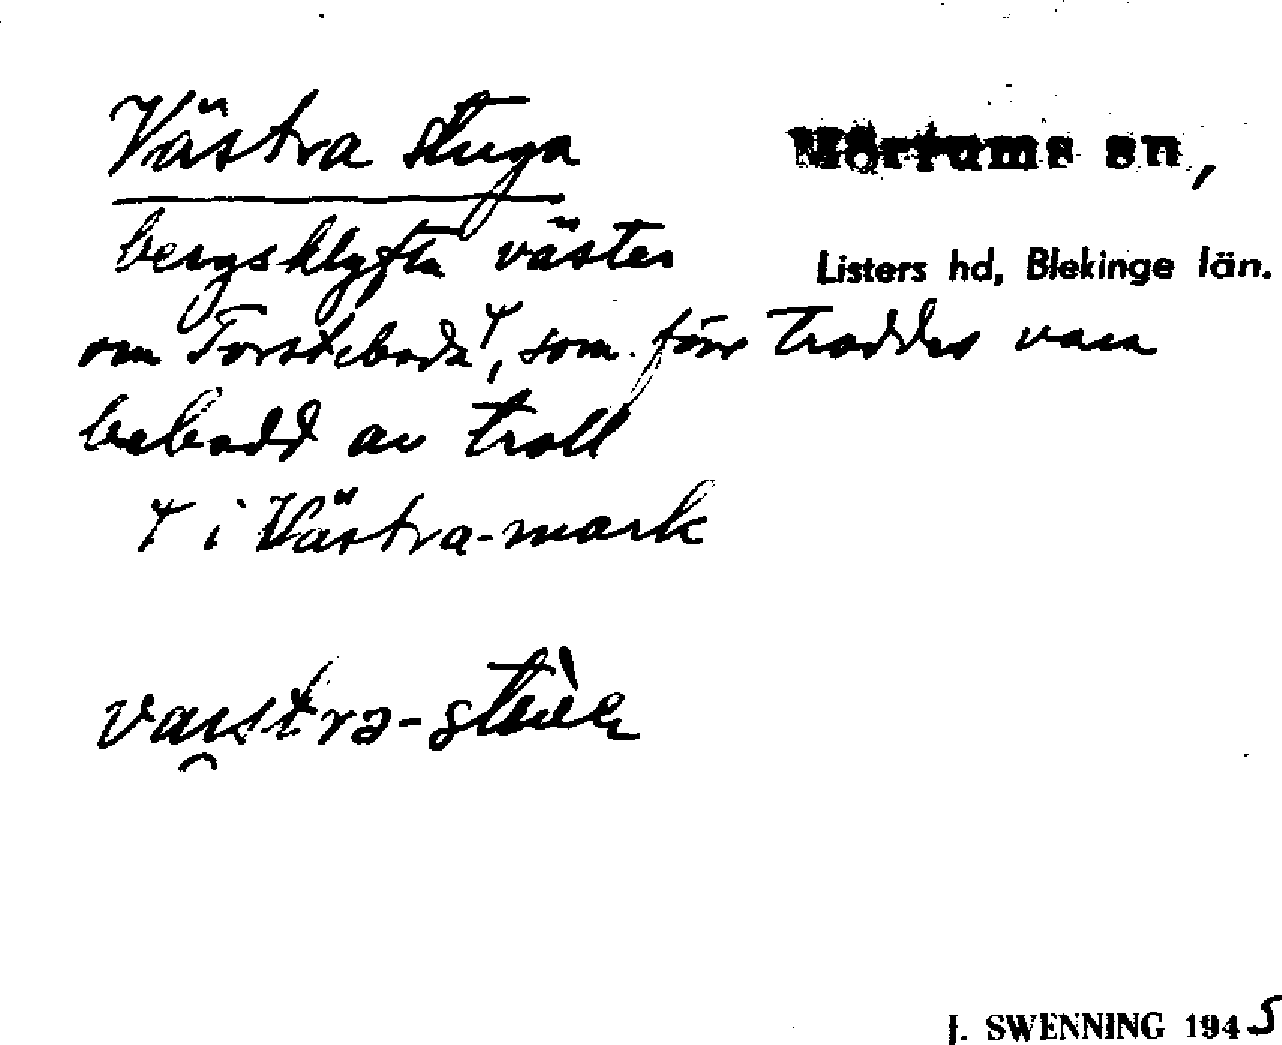 Västra stuga
Mörrums sn,
bergsklyfta väster
Listers hd, Blekinge län.
om Torsteboda⁺, som förr troddes vara
bebodd av troll
⁺ i Västra-mark
vaistra-
J. SWENNING 1945